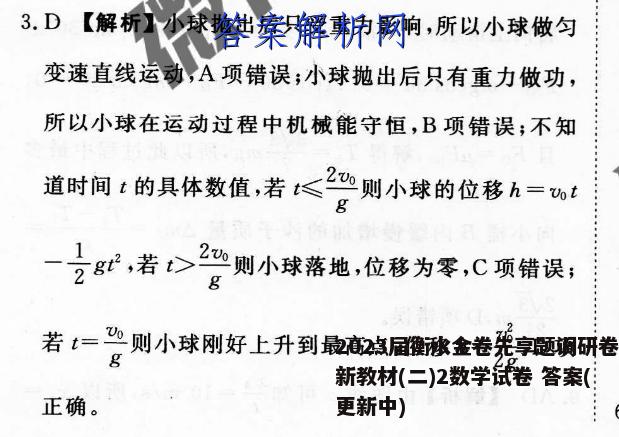 3. D 【解析】小球抛出后只受重力影响,所以小球做匀
答案解析网
变速直线运动,A 项错误;小球抛出后只有重力做功,
所以小球在运动过程中机械能守恒,B 项错误;不知
道时间 t 的具体数值,若 t≤2v₀/g 则小球的位移 h=v₀t
-1/2gt²,若 t>2v₀/g 则小球落地,位移为零,C 项错误;
若 t=v₀/g 则小球刚好上升到最
2023届衡水金卷先享题调研卷
新教材(二)2数学试卷 答案(
更新中)
正确。